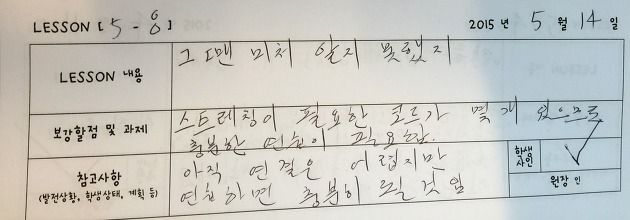 LESSON [ 5 - 8 ] 2015 년 5 월 14 일
LESSON 내용 그 땐 미처 알지 못했지
보강할점 및 과제 스트레칭이 필요한 코드가 몇 개 있으므로
충분한 연습이 필요함.
참고사항 아직 연결은 어렵지만
(발전상황, 학생상태, 계획 등) 연습하면 충분히 될 것 임
학생
사인
원장 인